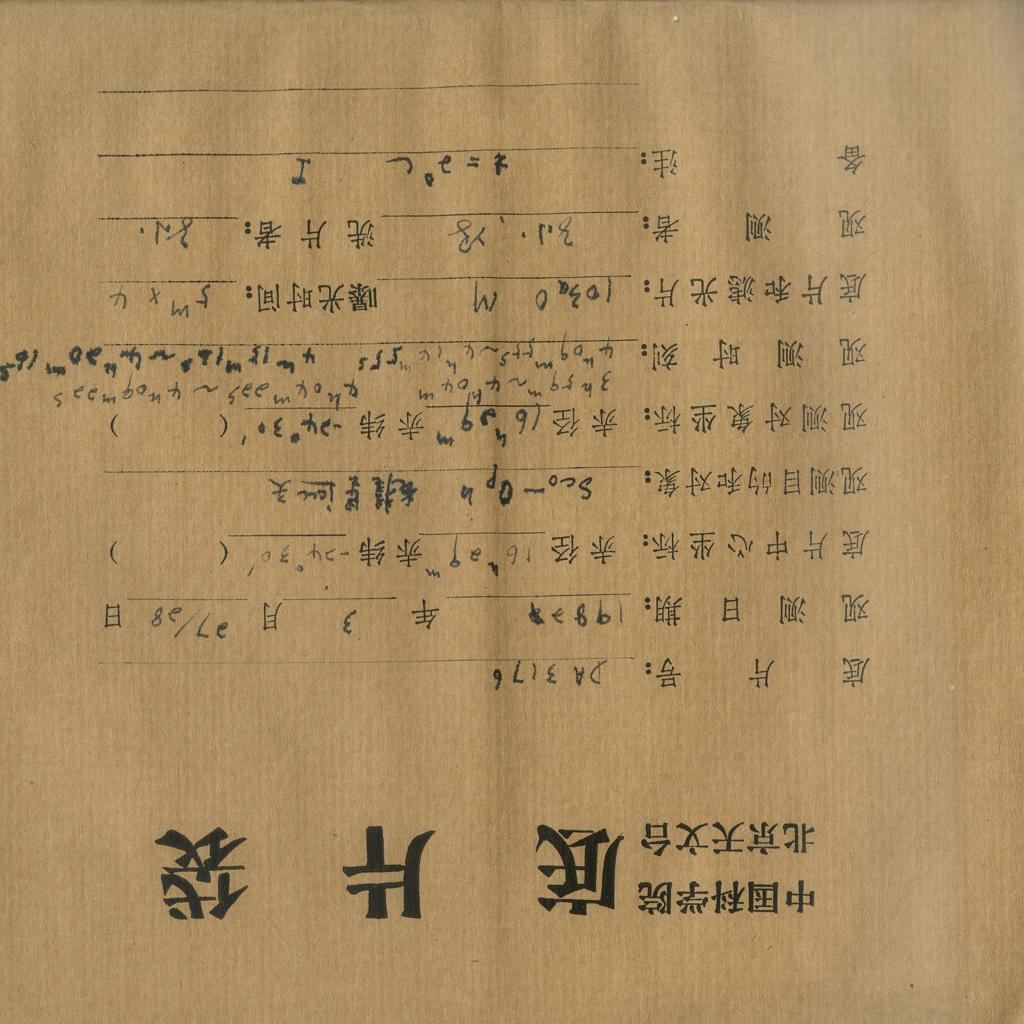 中国科学院
北京天文台
底片袋
底片号: DA3176
观测日期: 1982年3月27/28日
底片中心坐标: 赤经 16ʰ29ᵐ 赤纬 -24°30′ ( )
观测目的和对象: Sco-Oph
观测对象坐标: 赤经 16ʰ29ᵐ 赤纬 -24°30′ ( )
3ʰ59ᵐ~4ʰ04ᵐ 4ʰ04ᵐ22ˢ~4ʰ09ᵐ22ˢ
观测时刻: 4ʰ09ᵐ55ˢ~4ʰ14ᵐ55ˢ 4ʰ15ᵐ16ˢ~4ʰ20ᵐ16ˢ
底片和滤光片: 103aO M 曝光时间: 5ᵐ×4
观测者: 洗片者:
备注: t=2°C I